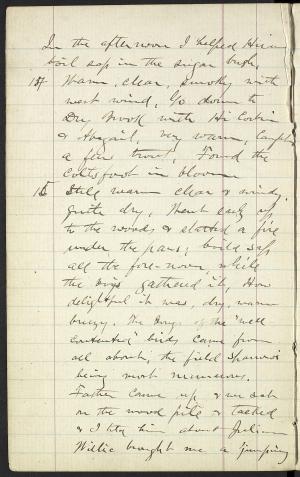 In the afternoon I helped Hiram
boil sap in the sugar bush.
14 Warm, clear, smoky with
west wind, Go down to
Dry Brook with Hi Corbin
& Abigail, very warm, Caught
a few trout, Found the
Coltsfoot in bloom
15 Still warm clear & windy,
quite dry, Went early up
to the woods & started a fire
under the pans; boiled sap
all the fore-noon, while
the boys gathered it, How
delightful it was, dry, warm
breezy. The songs of the "well-
contented" birds came from
all about, the field Sparrows
being most numerous.
Father came up & we sat
on the wood pile & talked
& I told him about Julian
Willie brought me a jumping